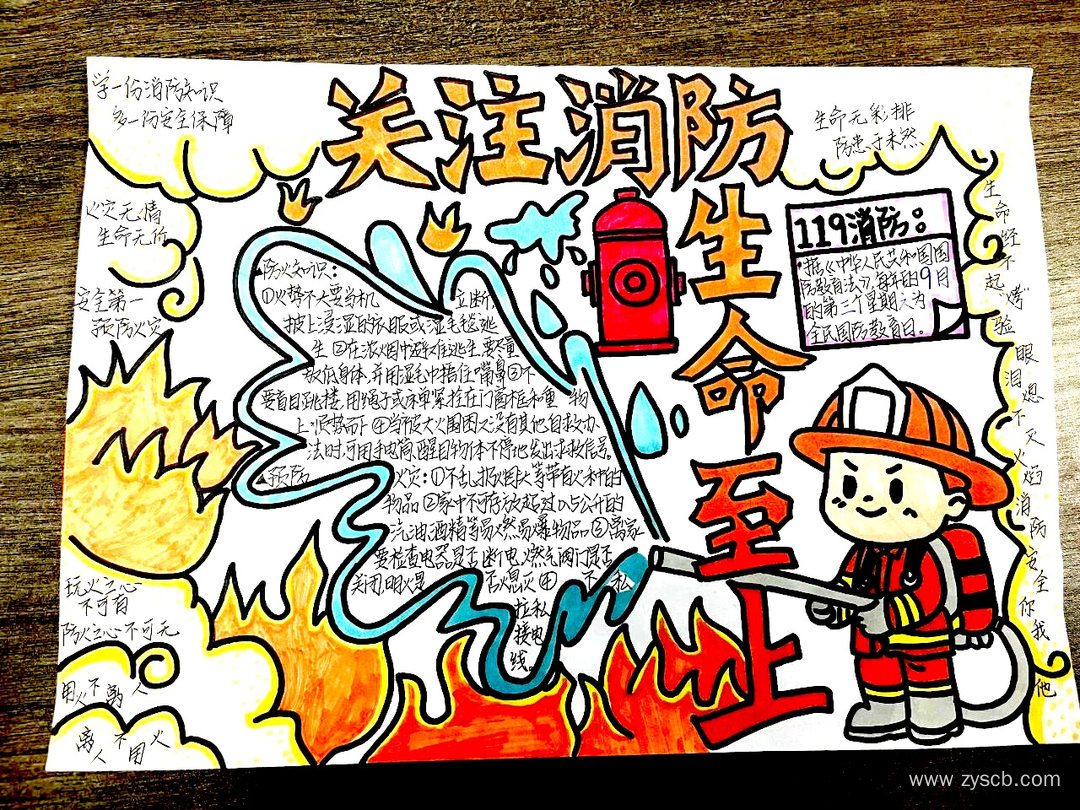 关注消防
生命至上
学一份消防知识
多一份安全保障
火灾无情
生命无价
安全第一
预防火灾
玩火之心
不可有
防火之心不可无
用火不离人
离人不用火
生命无彩排
防患于未然
生命经不起"烤"验
眼泪熄不灭火焰
消防安全你我他
119消防：
据《中华人民共和国国
防教育法》，每年的9月
的第三个星期六为
全民国防教育日。
防火知识：
①火势不大要当机立断，
披上浸湿的衣服或湿毛毯逃
生②在浓烟中避难逃生要尽量
放低身体，并用湿毛巾捂住嘴鼻③不
要盲目跳楼，用绳子或床单紧拴在门窗框和重物
上顺势而下④当被大火围困又没有其他自救办
法时，可用手电筒、醒目物体不停地发出求救信号。
预防火灾：①不乱扔烟头等带有火种的
物品②家中不可存放超过0.5公升的
汽油酒精等易燃易爆物品③离家
要检查电器是否断电，燃气阀门是否
关闭，明火是否熄灭④不私
拉私
接电
线。
www.zyscb.com